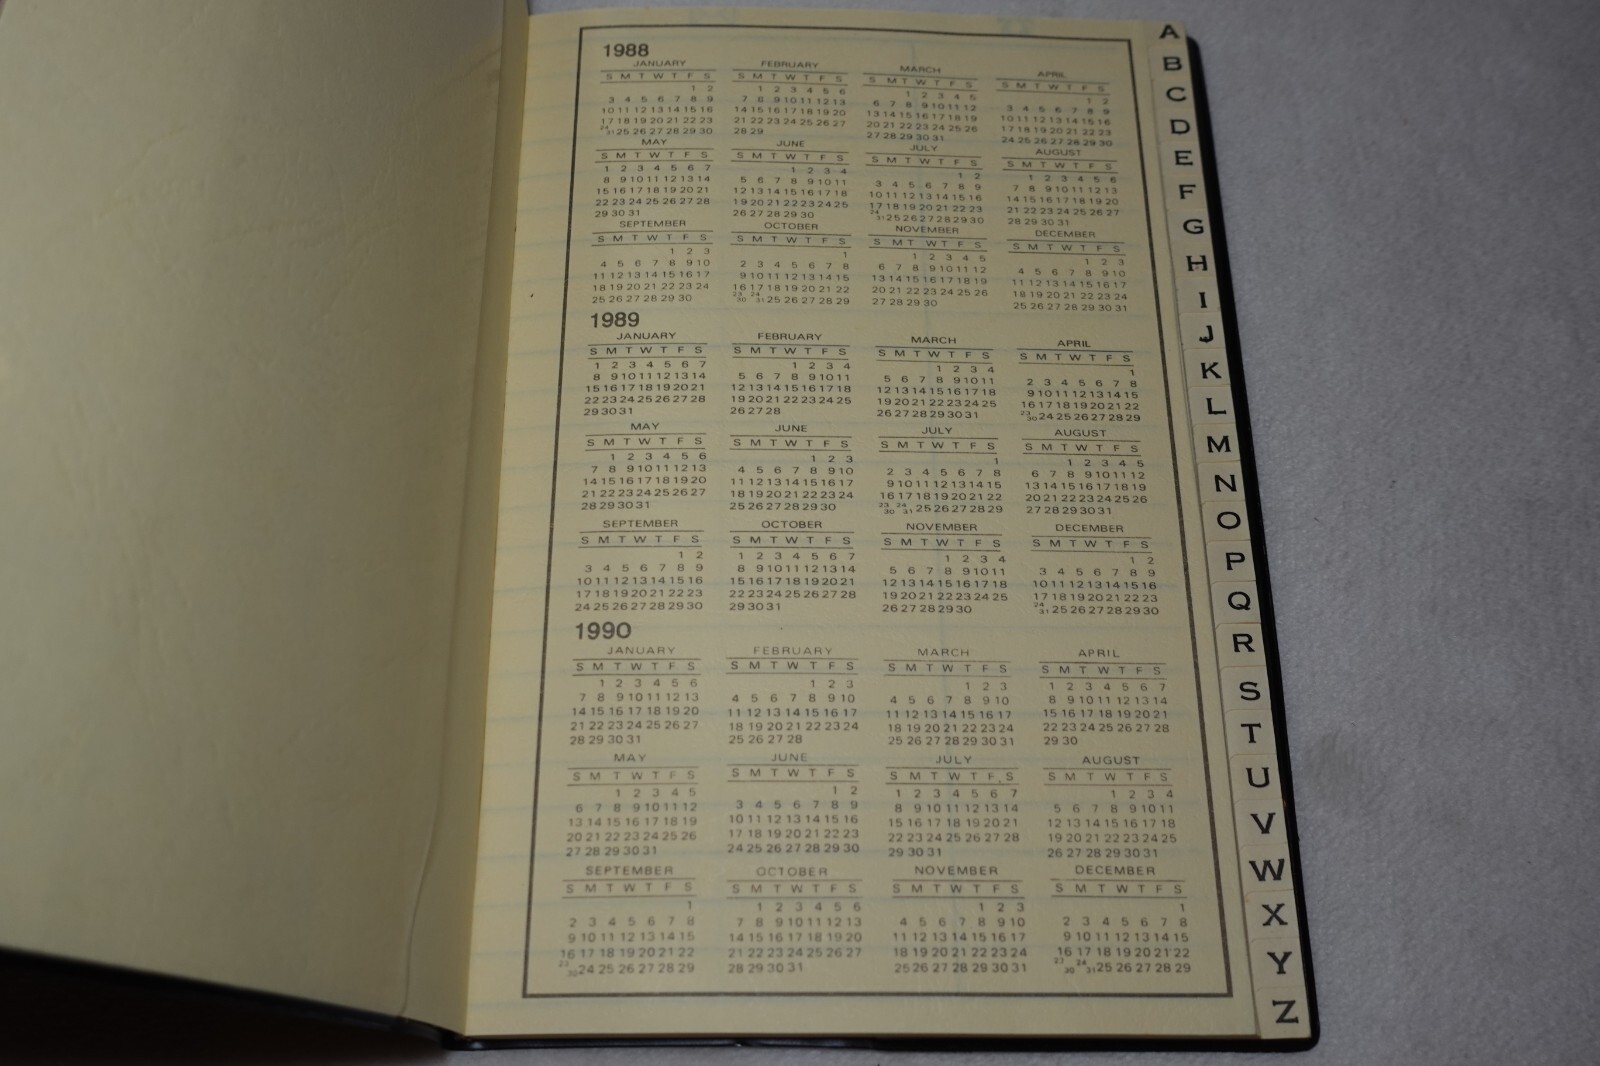 1988
JANUARY
S M T W T F S
1 2
3 4 5 6 7 8 9
10 11 12 13 14 15 16
17 18 19 20 21 22 23
24/31 25 26 27 28 29 30
FEBRUARY
S M T W T F S
1 2 3 4 5 6
7 8 9 10 11 12 13
14 15 16 17 18 19 20
21 22 23 24 25 26 27
28 29
MARCH
S M T W T F S
1 2 3 4 5
6 7 8 9 10 11 12
13 14 15 16 17 18 19
20 21 22 23 24 25 26
27 28 29 30 31
APRIL
S M T W T F S
1 2
3 4 5 6 7 8 9
10 11 12 13 14 15 16
17 18 19 20 21 22 23
24 25 26 27 28 29 30
MAY
S M T W T F S
1 2 3 4 5 6 7
8 9 10 11 12 13 14
15 16 17 18 19 20 21
22 23 24 25 26 27 28
29 30 31
JUNE
S M T W T F S
1 2 3 4
5 6 7 8 9 10 11
12 13 14 15 16 17 18
19 20 21 22 23 24 25
26 27 28 29 30
JULY
S M T W T F S
1 2
3 4 5 6 7 8 9
10 11 12 13 14 15 16
17 18 19 20 21 22 23
24/31 25 26 27 28 29 30
AUGUST
S M T W T F S
1 2 3 4 5 6
7 8 9 10 11 12 13
14 15 16 17 18 19 20
21 22 23 24 25 26 27
28 29 30 31
SEPTEMBER
S M T W T F S
1 2 3
4 5 6 7 8 9 10
11 12 13 14 15 16 17
18 19 20 21 22 23 24
25 26 27 28 29 30
OCTOBER
S M T W T F S
1
2 3 4 5 6 7 8
9 10 11 12 13 14 15
16 17 18 19 20 21 22
23/30 24/31 25 26 27 28 29
NOVEMBER
S M T W T F S
1 2 3 4 5
6 7 8 9 10 11 12
13 14 15 16 17 18 19
20 21 22 23 24 25 26
27 28 29 30
DECEMBER
S M T W T F S
1 2 3
4 5 6 7 8 9 10
11 12 13 14 15 16 17
18 19 20 21 22 23 24
25 26 27 28 29 30 31
1989
JANUARY
S M T W T F S
1 2 3 4 5 6 7
8 9 10 11 12 13 14
15 16 17 18 19 20 21
22 23 24 25 26 27 28
29 30 31
FEBRUARY
S M T W T F S
1 2 3 4
5 6 7 8 9 10 11
12 13 14 15 16 17 18
19 20 21 22 23 24 25
26 27 28
MARCH
S M T W T F S
1 2 3 4
5 6 7 8 9 10 11
12 13 14 15 16 17 18
19 20 21 22 23 24 25
26 27 28 29 30 31
APRIL
S M T W T F S
1
2 3 4 5 6 7 8
9 10 11 12 13 14 15
16 17 18 19 20 21 22
23/30 24 25 26 27 28 29
MAY
S M T W T F S
1 2 3 4 5 6
7 8 9 10 11 12 13
14 15 16 17 18 19 20
21 22 23 24 25 26 27
28 29 30 31
JUNE
S M T W T F S
1 2 3
4 5 6 7 8 9 10
11 12 13 14 15 16 17
18 19 20 21 22 23 24
25 26 27 28 29 30
JULY
S M T W T F S
1
2 3 4 5 6 7 8
9 10 11 12 13 14 15
16 17 18 19 20 21 22
23/30 24/31 25 26 27 28 29
AUGUST
S M T W T F S
1 2 3 4 5
6 7 8 9 10 11 12
13 14 15 16 17 18 19
20 21 22 23 24 25 26
27 28 29 30 31
SEPTEMBER
S M T W T F S
1 2
3 4 5 6 7 8 9
10 11 12 13 14 15 16
17 18 19 20 21 22 23
24 25 26 27 28 29 30
OCTOBER
S M T W T F S
1 2 3 4 5 6 7
8 9 10 11 12 13 14
15 16 17 18 19 20 21
22 23 24 25 26 27 28
29 30 31
NOVEMBER
S M T W T F S
1 2 3 4
5 6 7 8 9 10 11
12 13 14 15 16 17 18
19 20 21 22 23 24 25
26 27 28 29 30
DECEMBER
S M T W T F S
1 2
3 4 5 6 7 8 9
10 11 12 13 14 15 16
17 18 19 20 21 22 23
24/31 25 26 27 28 29 30
1990
JANUARY
S M T W T F S
1 2 3 4 5 6
7 8 9 10 11 12 13
14 15 16 17 18 19 20
21 22 23 24 25 26 27
28 29 30 31
FEBRUARY
S M T W T F S
1 2 3
4 5 6 7 8 9 10
11 12 13 14 15 16 17
18 19 20 21 22 23 24
25 26 27 28
MARCH
S M T W T F S
1 2 3
4 5 6 7 8 9 10
11 12 13 14 15 16 17
18 19 20 21 22 23 24
25 26 27 28 29 30 31
APRIL
S M T W T F S
1 2 3 4 5 6 7
8 9 10 11 12 13 14
15 16 17 18 19 20 21
22 23 24 25 26 27 28
29 30
MAY
S M T W T F S
1 2 3 4 5
6 7 8 9 10 11 12
13 14 15 16 17 18 19
20 21 22 23 24 25 26
27 28 29 30 31
JUNE
S M T W T F S
1 2
3 4 5 6 7 8 9
10 11 12 13 14 15 16
17 18 19 20 21 22 23
24 25 26 27 28 29 30
JULY
S M T W T F S
1 2 3 4 5 6 7
8 9 10 11 12 13 14
15 16 17 18 19 20 21
22 23 24 25 26 27 28
29 30 31
AUGUST
S M T W T F S
1 2 3 4
5 6 7 8 9 10 11
12 13 14 15 16 17 18
19 20 21 22 23 24 25
26 27 28 29 30 31
SEPTEMBER
S M T W T F S
1
2 3 4 5 6 7 8
9 10 11 12 13 14 15
16 17 18 19 20 21 22
23/30 24 25 26 27 28 29
OCTOBER
S M T W T F S
1 2 3 4 5 6
7 8 9 10 11 12 13
14 15 16 17 18 19 20
21 22 23 24 25 26 27
28 29 30 31
NOVEMBER
S M T W T F S
1 2 3
4 5 6 7 8 9 10
11 12 13 14 15 16 17
18 19 20 21 22 23 24
25 26 27 28 29 30 31
DECEMBER
S M T W T F S
1
2 3 4 5 6 7 8
9 10 11 12 13 14 15
16 17 18 19 20 21 22
23/30 24/31 25 26 27 28 29
A
B
C
D
E
F
G
H
I
J
K
L
M
N
O
P
Q
R
S
T
U
V
W
X
Y
Z